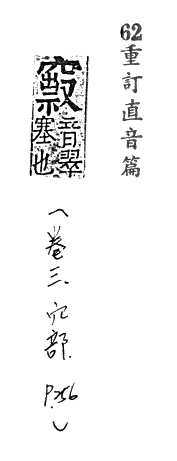 62重訂直音篇
音翠
塞也
(卷三.穴部.P.256)